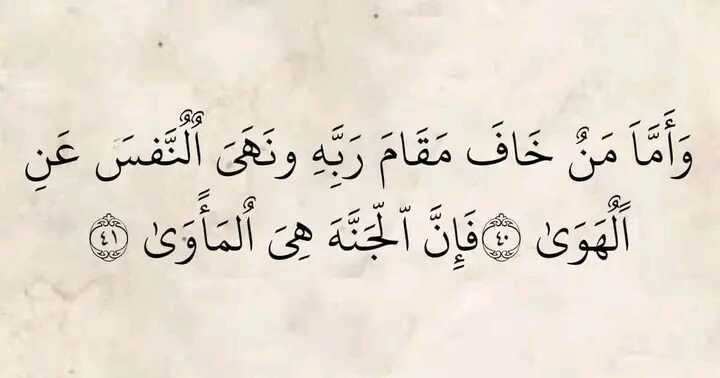 وَأَمَّا مَنْ خَافَ مَقَامَ رَبَّهِ ونَهَىَ ٱلْنَّفسَ عَنِ
ٱلْهَوَىٰ ۝٤٠ فَإِنَّ ٱلّجَنَّهَ هِىَ ٱلمَأًوَىٰ ۝٤١